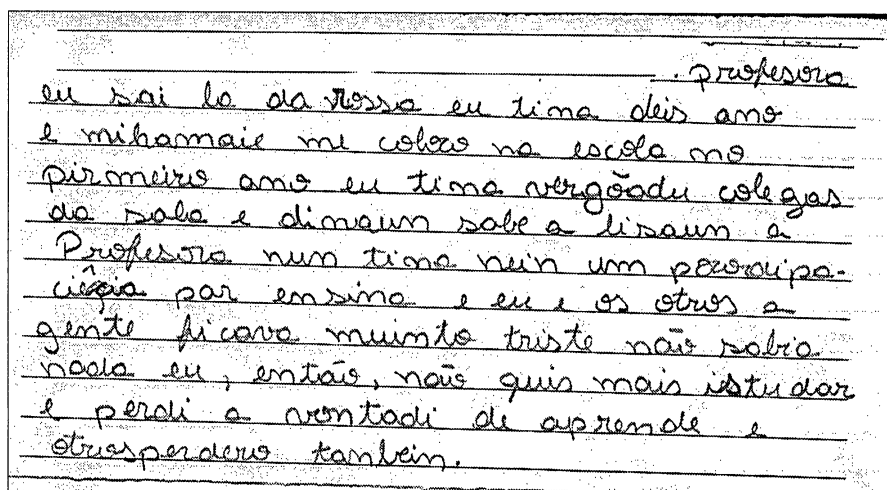 . profesora
eu sai la da rossa eu tina deis ano
e mihamaie me coloco na escola no
pirmeiro ano eu tina vergõadu colegas
da sala e dinaun sabe a lisaun a
Profesora nun tina nein um poucdipa-
ciêcia par ensina e eu e os otros a
gente ficava muinto triste não sabia
nada eu, então, não quis mais istudar
e perdi a vontadi de aprende e
otrosperdero tanbein.